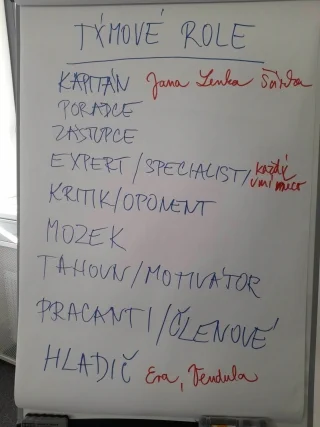 TÝMOVÉ ROLE
KAPITÁN Jana Lenka Šárka
PORADCE
ZÁSTUPCE
EXPERT / SPECIALIST / každý umí něco
KRITIK/OPONENT
MOZEK
TAHOUN/MOTIVÁTOR
PRACANTI/ČLENOVÉ
HLADIČ Eva, Vendula